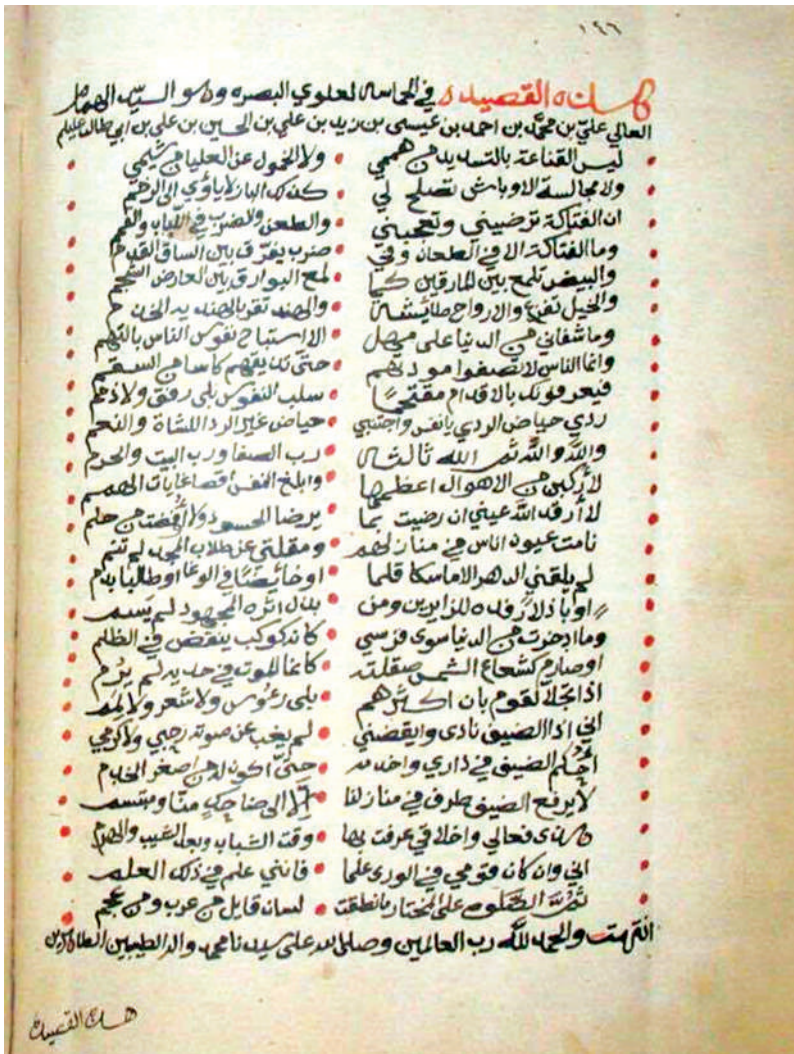 ١٤٦
هذه القصيده في الحماسه لعلوي البصره وهو السيد الهمام
العالي علي بن محمد بن احمد بن عيسى بن زيد بن علي بن الحسين بن علي بن ابي طالب عليلم
ليس القناعة بالتسديد من هممي ولا الخمول عن العليا من شيمي
ولا مجالسة الاوباش تصلح لي كذلك الباز لا ياؤي الى الرخم
ان الفتاكة ترضيني وتعجبني والطعن والضرب في اللباب والقمم
وما الفتاكة الا في الطعان وفي ضرب يفرق بين الساق القدم
والبيض تلمع بين المارقين كما لمع البوارق بين العارض السجم
والخيل تفزع والارواح طايشه والهند تقر بالهنديه الخذم
وما شفاني من الدنيا على مهل الا استباح نفوس الناس بالتهم
وانما الناس لا تصفوا مودتهم حتى تذيقهم كاسا من السقم
فيعرفونك بالاقدام مقتحما سلب النفوس بلى رفق ولا ذمم
ردي حياض الردي يا نفس واجتنبي حياض غير الردا للشاة والنعم
والله والله ثم الله ثالثه رب الصفا ورب البيت والحرم
لاركبن من الاهوال اعظمها وابلغ النفس اقصا غايات الهمم
لا أرقد الله عيني ان رضيت بما يرضا الحسود ولا من حلم
نامت عيون اناس في منازلهم ومقلتي عن طلاب المجد لم تنم
لم يلقني الدهر الا ماسكا قلما او خائضا في الوغا او طالبا بدم
او باذلا رفده للزايدين ومن بذل اثره المجهود لم يسم
وما ادخرت من الدنيا سوى فرسي كانه كوكب ينقض في الظلم
او صارم كشعاع الشمس صقلته كانما الموت في حديه لم يرم
اذا تجلا لقوم بان اكثرهم بلى رءوس ولا شعر ولا لمم
اني اذا الضيف نادى وايقضني لم يغب عن صوته رحبي ولا كرمي
أحكم الضيف في داري واخدمه حتى اكون له من اصغر الخدم
لا يرفع الضيف طرف في منازلنا الا الى ضاحك منا ومبتسم
هذى فعالي واخلاقي عرفت بها وقت الشباب وبعد الشيب والهرم
اني وان كان قومي في الورى علما فانني علم في ذلك العلم
ثم الصلوه على المختار ما نطقت لسان قايل من عرب ومن عجم
انتهت والحمد لله رب العالمين وصلى الله على سيدنا محمد واله الطيبين الطاهرين
هذه القصيدة